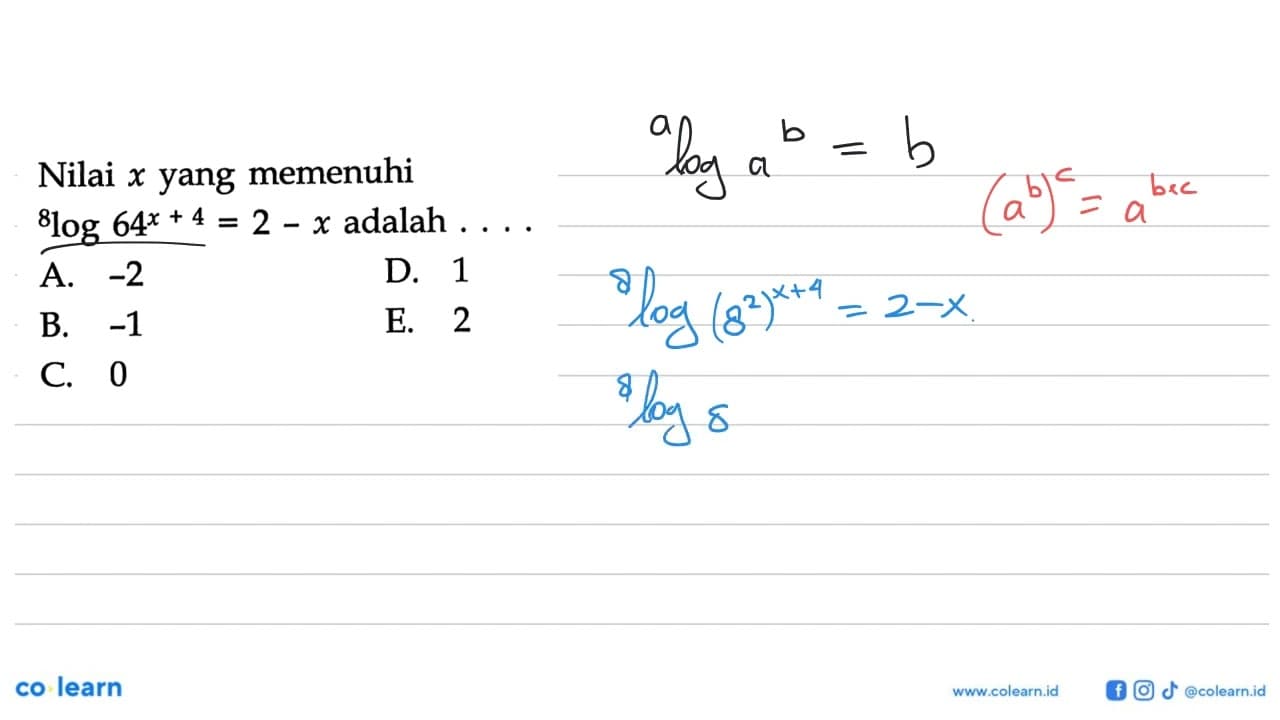 Nilai x yang memenuhi
⁸log 64ˣ ⁺ ⁴ = 2 – x adalah . . . .
A. –2 D. 1
B. –1 E. 2
C. 0
ᵃlog aᵇ = b
(aᵇ)ᶜ = aᵇˣᶜ
⁸log (8²)ˣ⁺⁴ = 2-x.
⁸log 8
co learn
www.colearn.id @colearn.id